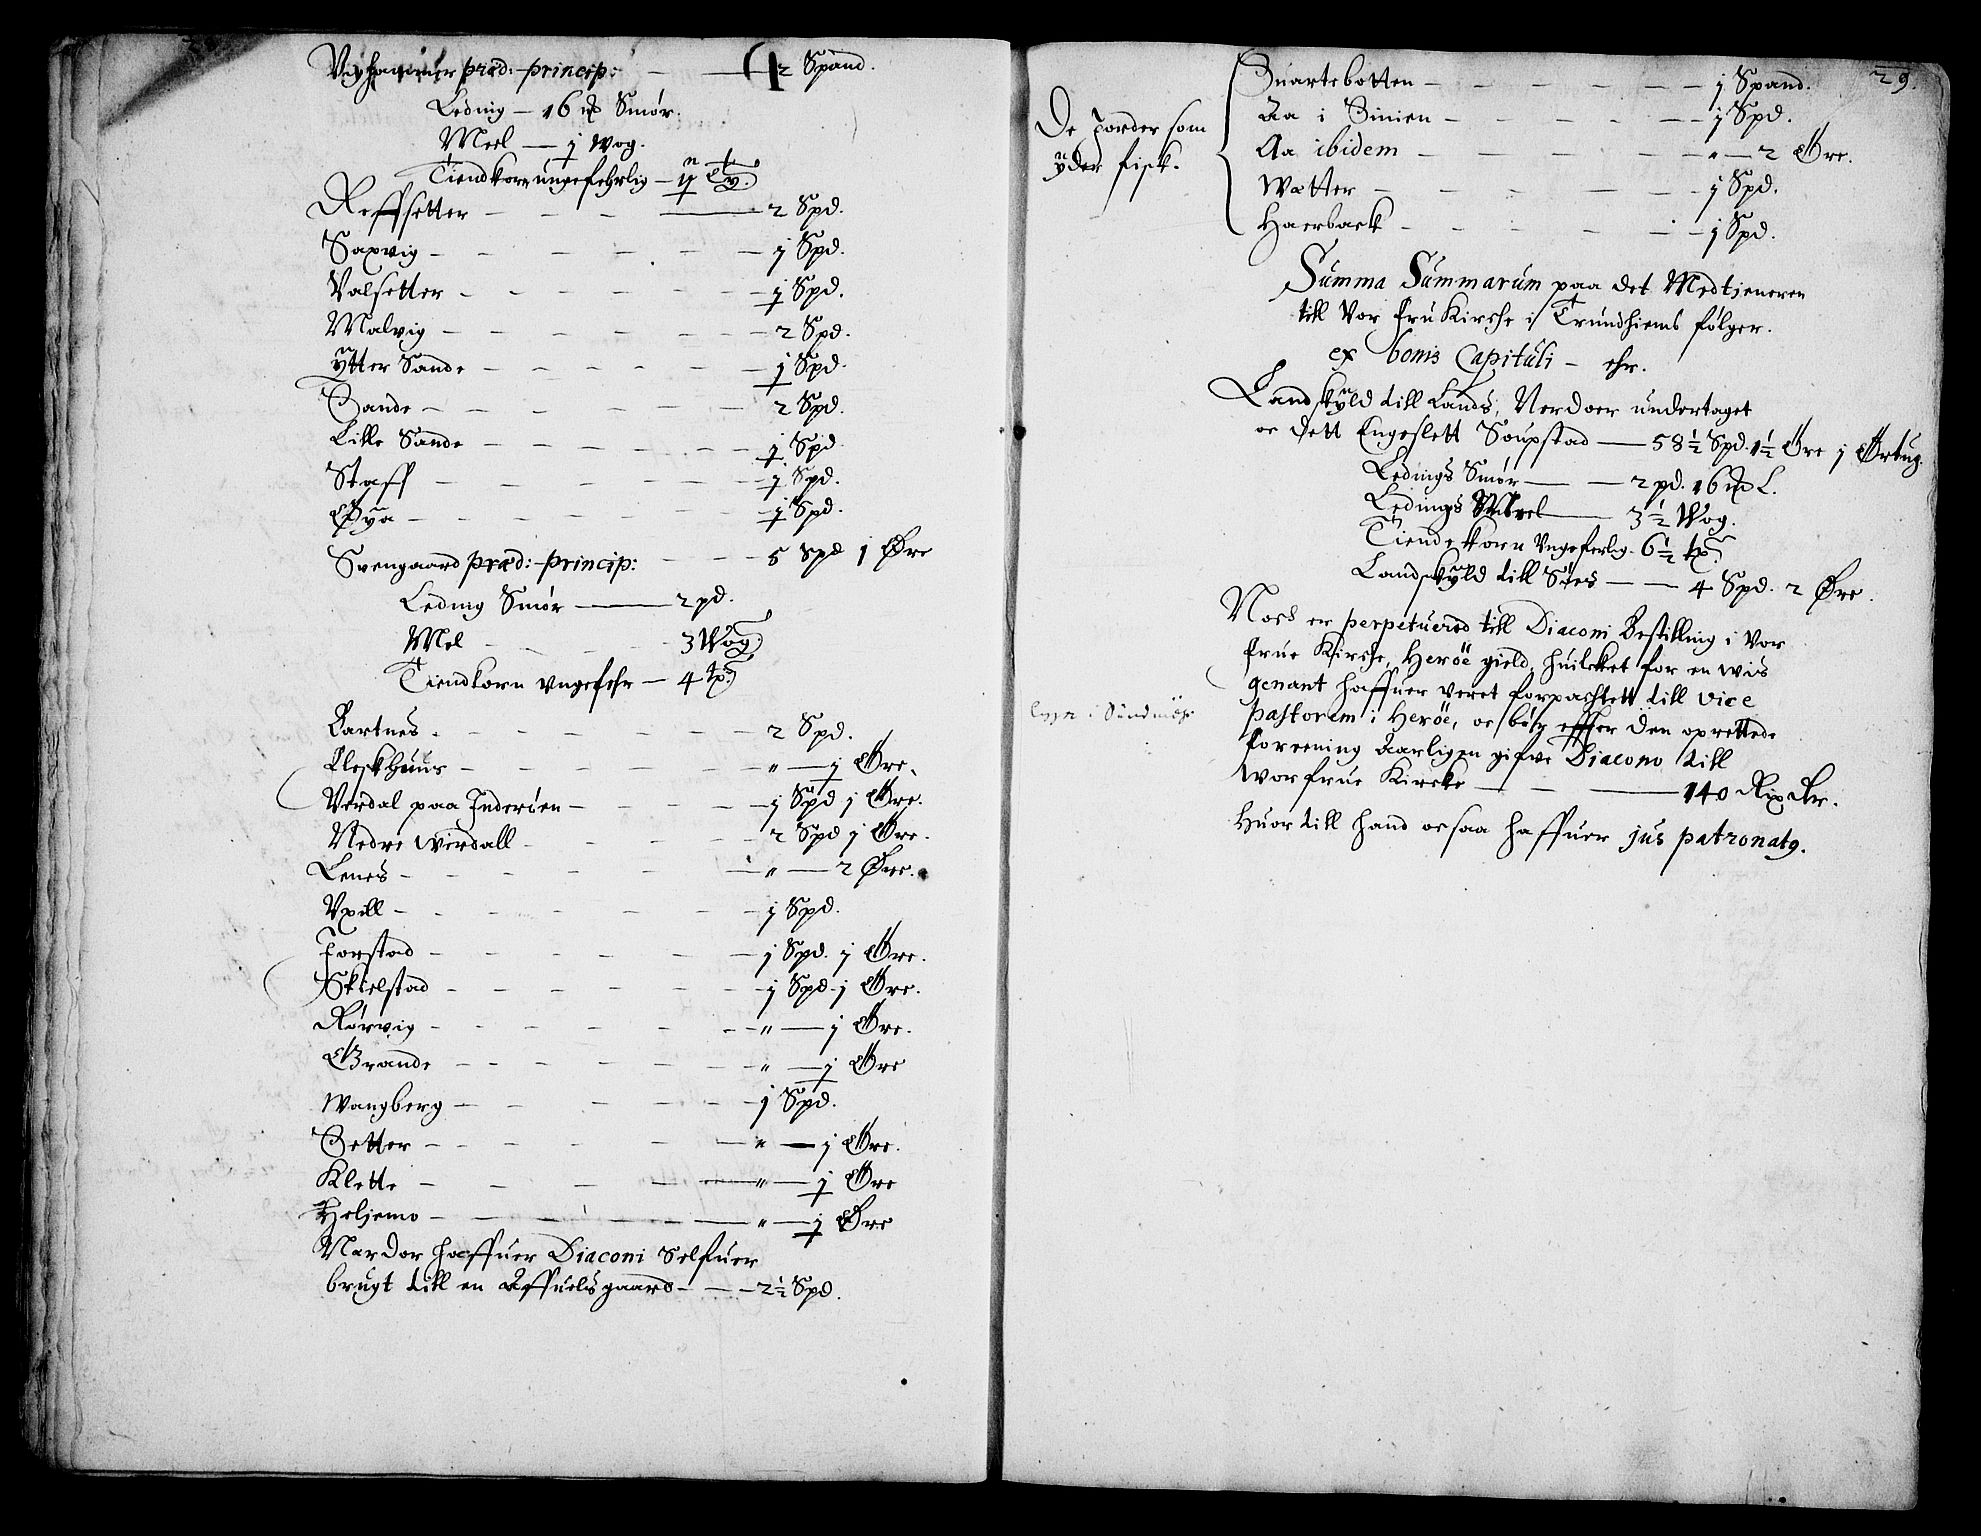 Vighammer præd: princip: — — 2 Spand.
Leding — 16 ℔ Smør.
Meel — j Wog.
Tiendkorn ungefehrlig — ij tp.
Reffsetter — — — 2 Spd.
Saxvig — — — j Spd.
Valsetter — — — j Spd.
Malvig — — — 2 Spd.
Ytter Sande — — — j Spd.
Sande — — — 2 Spd.
Lille Sande — — — j Spd.
Staff — — — j Spd.
Øya — — — j Spd.
Svengaard præd: princip: — — 5 Spd j Øre
Leding Smør — 2 pd.
Mel — 3 Wog
Tiendkorn vngefehr — 4 tp.
Bartnes — — — 2 Spd.
Kleskhuus — — — " — j Øre.
Verdal paa Inderøen — — — j Spd j Øre.
Nedre Werdall — — — 2 Spd j Øre.
Lenes — — — " — 2 Øre.
Vpill — — — j Spd.
Forstad — — — j Spd. j Øre.
Skielstad — — — j Spd. j Øre.
Rørvig — — — " — j Øre.
Grande — — — " — j Øre
Wangberg — — — j Spd.
Setter — — — " — j Øre.
Klette — — — " — j Øre
Heljemo — — — " — j Øre
Nardor haffuer Diaconi Selfuer
brugt till en Affuelsgaard — — 2½ Spd.
29.
De Jorder som
yder fisk.
Suartebotten — — — j Spand.
Aa i Sinien — — — j Spd.
Aa ibidem — — — " — 2 Øre.
Wætter — — — j Spd.
Haerbaek — — — j Spd.
Summa Summarum paa det Medtjeneren
till Vor fru Kirche i Trundhiems følger.
ex bonis Capituli — ehr.
Landskyld till Lands, Nerdoer undertaget
oc dett Engeslett Soupstad — 58½ Spd. 1½ Øre j Ørtug.
Ledings Smør — — 2 pd. 16 ℔ L.
Ledings Meel — 3½ Wog.
Tiendekorn Vngeferlig. 6½ tp.
Landskyld till Søes — — 4 Spd. 2 Øre.
Noch er perpetuered till Diaconi Bestilling i Vor
frue Kirche, Herøe gield, huilcket for en wis
genant haffuer veret forpachtett till vice
pastorem i Herøe, oc bør effter den oprettede
foreening Aarligen gifve Diacono till
Wor frue Kircke — — 140 Rix Dr.
Huor till hand ocsaa haffuer jus patronatg.
i Sundmør